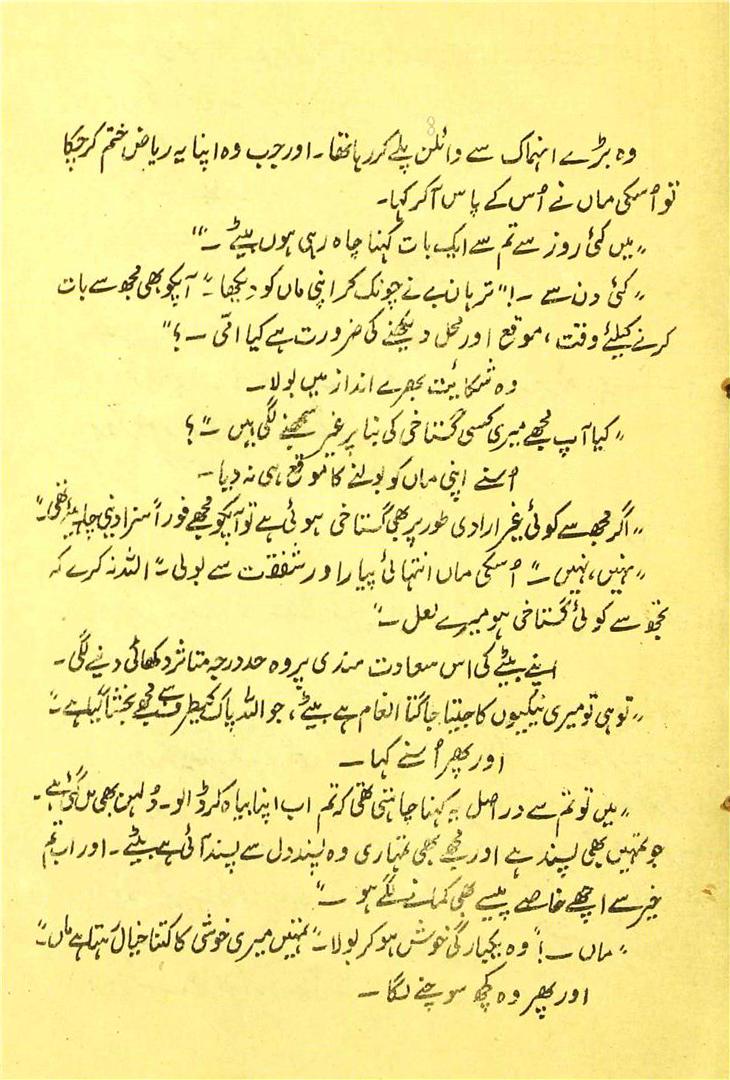 وہ بڑے انہماک سے وائلن پلے کر رہا تھا۔ اور جب وہ اپنا یہ ریاض ختم کر چکا
تو اُسکی ماں نے اُس کے پاس آکر کہا۔
”میں کئی روز سے تم سے ایک بات کہنا چاہ رہی ہوں بیٹے ۔“
”کئی دن سے ۔!“ ترہان بے نے چونک کر اپنی ماں کو دیکھا۔ ”آپکو بھی مجھ سے بات
کرنے کیلئے وقت، موقع اور محل دیکھنے کی ضرورت ہے کیا امّی ۔؟“
وہ شکائیت بھرے انداز میں بولا۔
”کیا آپ مجھے میری کسی گستاخی کی بنا پر غیر سمجھنے لگی ہیں ۔“؟
اُسنے اپنی ماں کو بولنے کا موقع ہی نہ دیا۔
”اگر مجھ سے کوئی غیر ارادی طور پر بھی گستاخی ہوئی ہے تو آپکو مجھے فوراً سزا دینی چاہیئے تھی۔“
”نہیں، نہیں ۔“ اُسکی ماں انتہائی پیار اور شفقت سے بولی۔ ”اللہ نہ کرے کہ
تجھ سے کوئی گستاخی ہو میرے لعل ۔“
اپنے بیٹے کی اس سعادت مندی پر وہ حد درجہ متاثر دکھائی دینے لگی۔
”تو ہی تو میری نیکیوں کا جیتا جاگتا انعام ہے بیٹے، جو اللہ پاک کیطرف سے مجھے بخشا گیا ہے ۔“
اور پھر اُسنے کہا۔
”میں تو تم سے دراصل یہ کہنا چاہتی تھی کہ تم اب اپنا بیاہ کر ڈالو۔ دُلہن بھی مل گئی ہے۔
جو تمہیں بھی پسند ہے اور مجھے بھی تمہاری وہ پسند دل سے پسند آئی ہے بیٹے۔ اور اب تم
خیر سے اچھے خاصے پیسے بھی کمانے لگے ہو ۔“
”ماں ۔!“ وہ یکبارگی خوش ہو کر بولا۔ ”تمہیں میری خوشی کا کتنا خیال رہتا ہے ماں۔“
اور پھر وہ کچھ سوچنے لگا۔